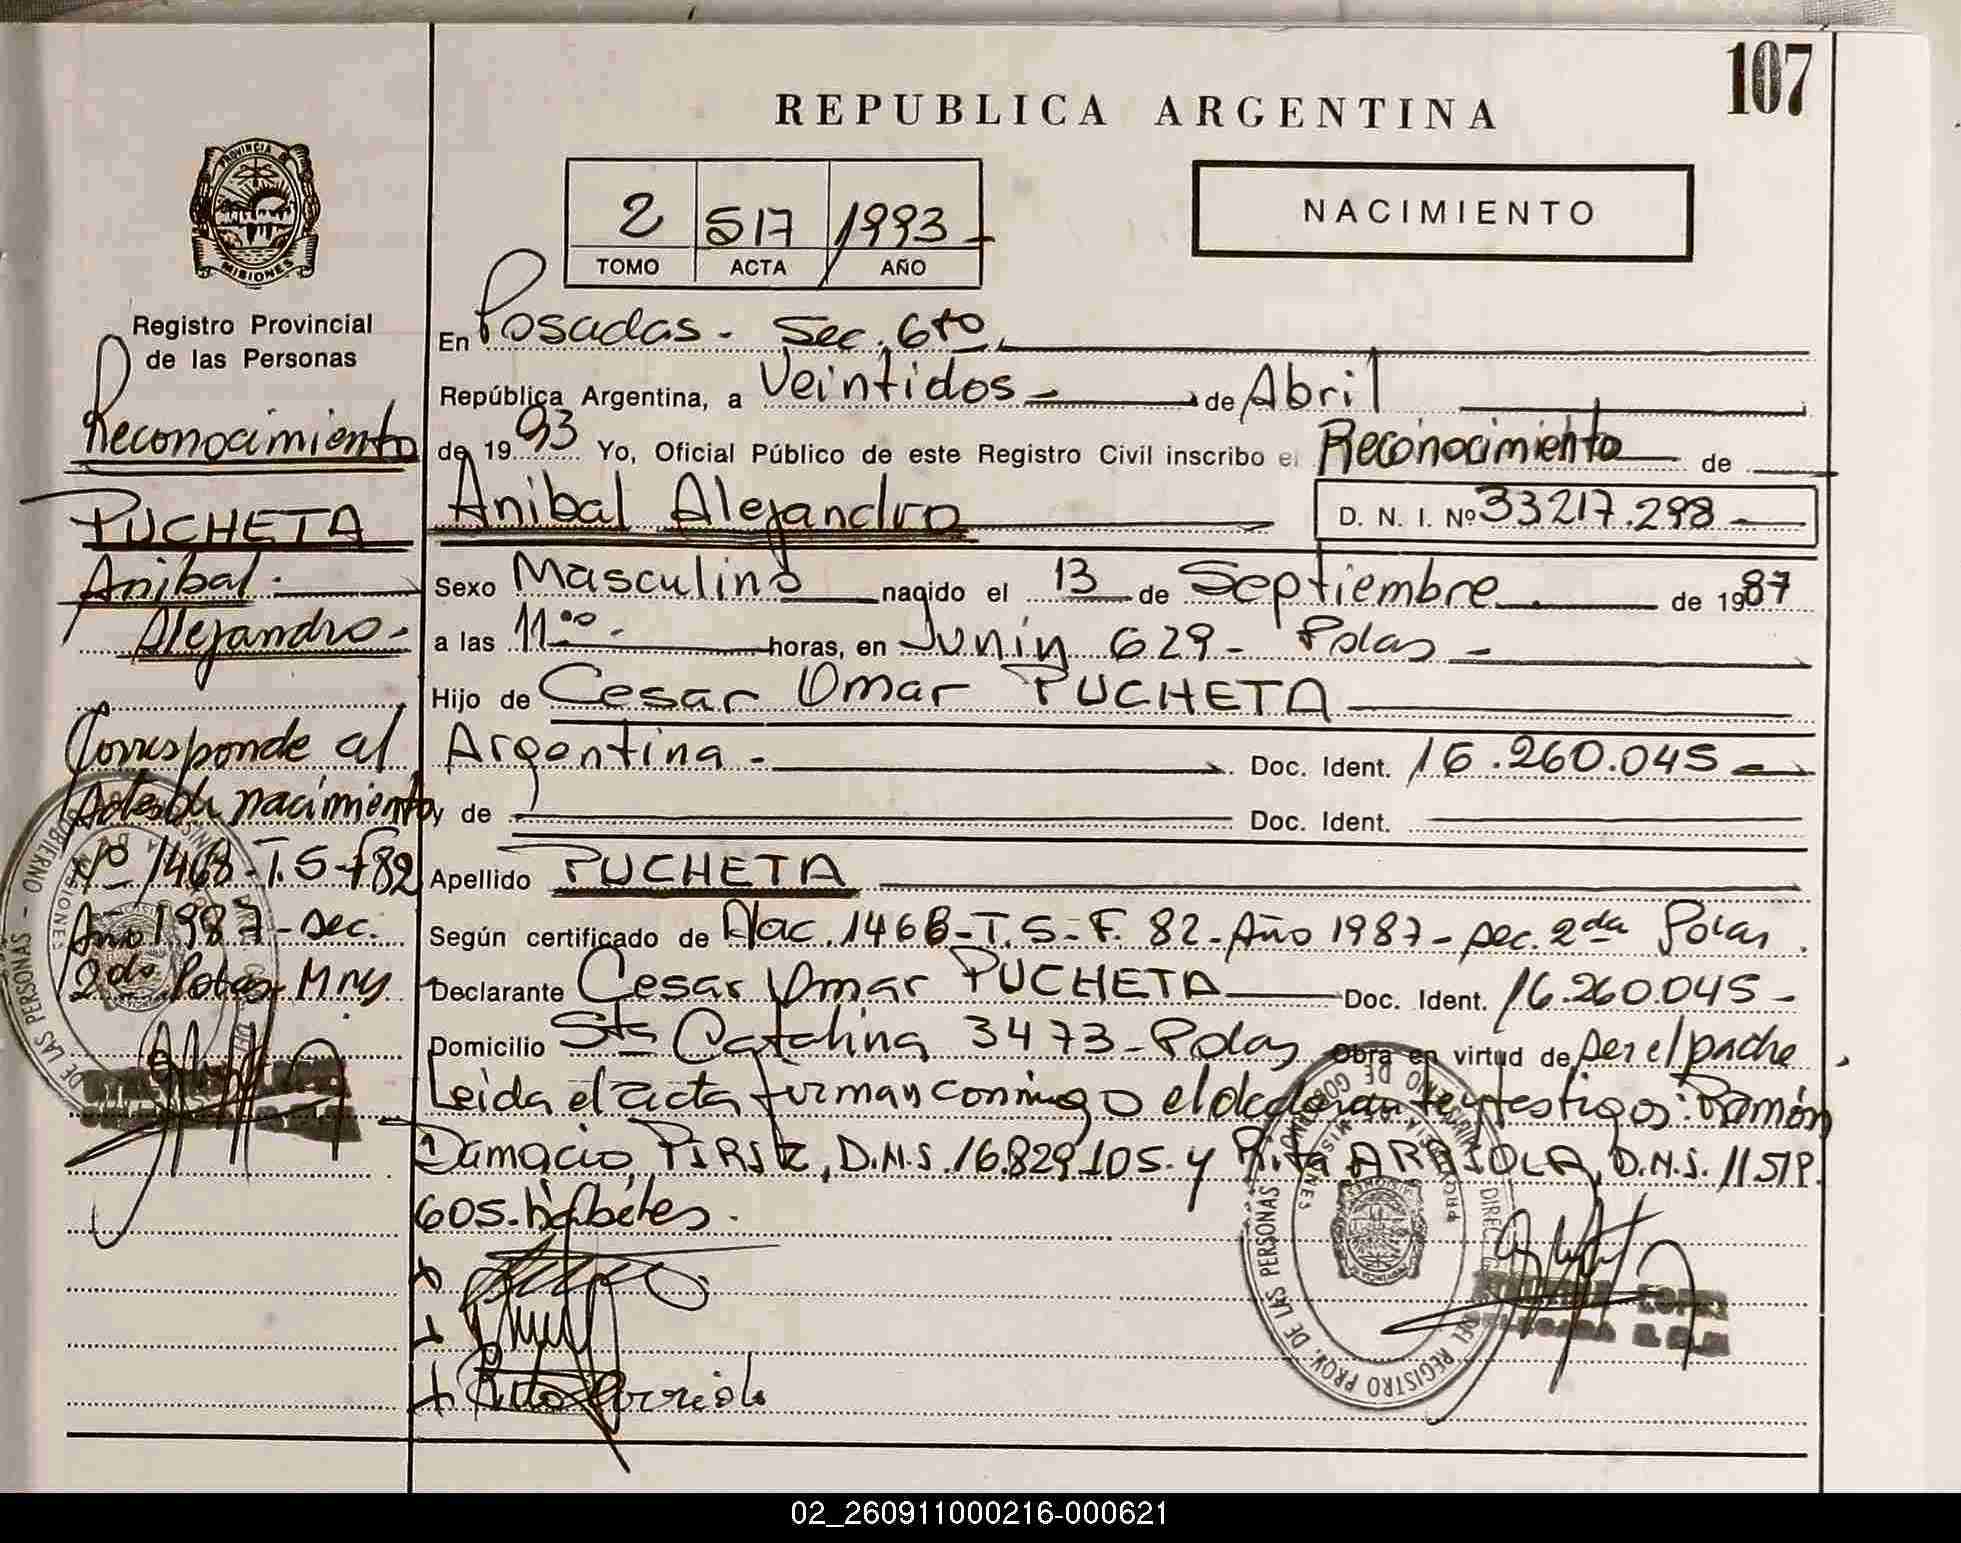 107
REPUBLICA ARGENTINA
2 517 1993
TOMO ACTA AÑO
NACIMIENTO
PROVINCIA DE
MISIONES
Registro Provincial
de las Personas
Reconocimiento
PUCHETA
Anibal
Alejandro -
Corresponde al
nacimiento
Nº 1468-T.5-f82
Año 1987-sec.
2da Pdas Mnes
En Posadas - Sec. 6ta.
República Argentina, a Veintidos de Abril
de 1993 Yo, Oficial Público de este Registro Civil inscribo el Reconocimiento de
Anibal Alejandro D. N. I. Nº 33217.298
Sexo Masculino nacido el 13 de Septiembre de 1987
a las 11 00 - horas, en Junin 629 - Pdas -
Hijo de Cesar Omar PUCHETA
Argentina - Doc. Ident. 16.260.045
y de Doc. Ident.
Apellido PUCHETA
Según certificado de Nac. 1468-T.5-F. 82-Año 1987-sec. 2da Pdas.
Declarante Cesar Omar PUCHETA Doc. Ident. 16.260.045-
Domicilio Sta Catalina 3473-Pdas Obra en virtud de ser el padre
Leida el acta firman conmigo el declarante y testigos: Ramón
Damacio, D.N.I. 16.829.105. y Rita ARRIOLA, D.N.I. 11519.
605. hábiles.
Rita Arriola
DE LAS PERSONAS
DEL REGISTRO PROV. DE LAS PERSONAS
LOPEZ
02_260911000216-000621